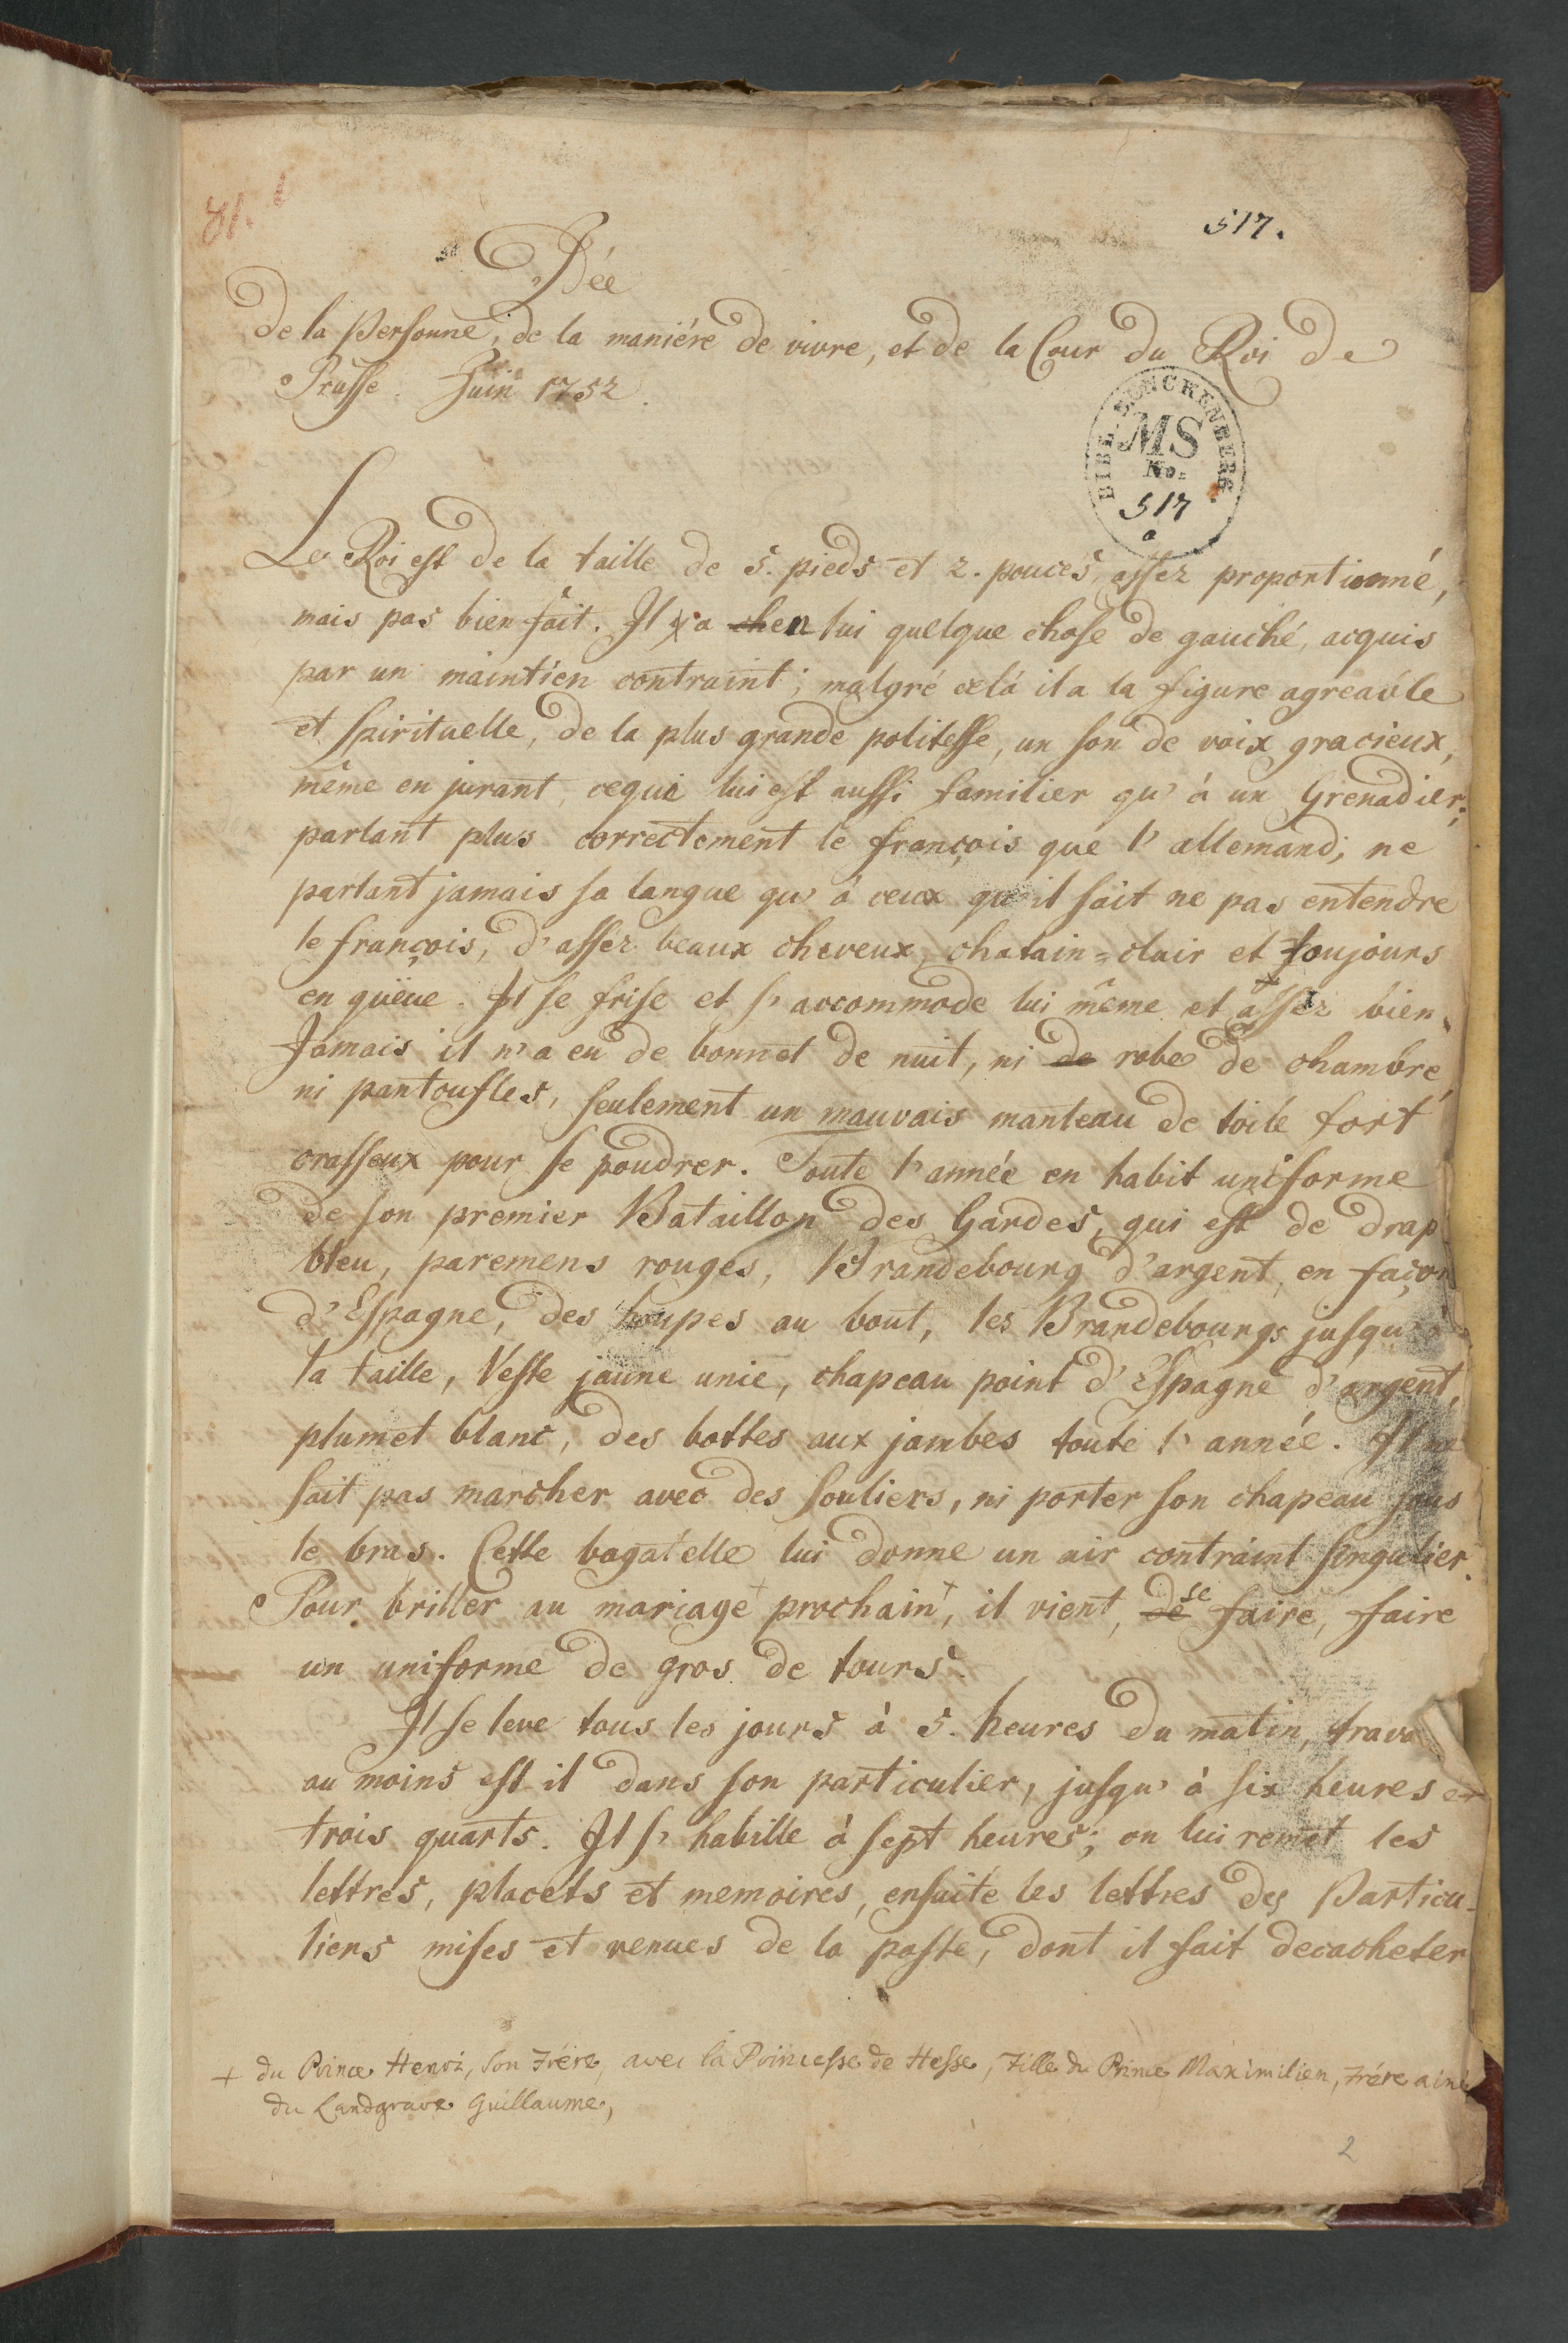 517.
Idée
de la personne, de la maniére de vivre, et de la Cour du Roi de
Prusse. Juin 1752.
BIBL. SENCKENBERG.
MS
No.
517
a
Le Roi est de la taille de 5. pieds et 2. pouces, assez proportionné,
mais pas bien fait. Il y a chen lui quelque chose de gauché, acquis
par un maintien contraint; malgré celà il a la figure agreable
et spirituelle, de la plus grande politesse, un son de voix gracieux,
même en jurant, cequi lui est aussi familier qu'à un Grenadier;
parlant plus correctement le françois que l'allemand; ne
parlant jamais sa langue qu'à ceux qu'il sait ne pas entendre
le françois, d'assez beaux cheveux, chatain=clair et toujours
en queue. Il se frise et s'accommode lui même et assez bien.
Jamais il n'a eu de bonnet de nuit, ni de robe de chambre,
ni pantoufles, seulement un mauvais manteau de toile fort
crasseux pour se poudrer. Toute l'année en habit uniforme
de son premier Bataillon des Gardes, qui est de drap
bleu, paremens rouges, Brandebourg d'argent, en façon
d'Espagne, des houpes au bout, les Brandebourgs jusqu'à
la taille, Veste jaune unie, chapeau point d'Espagne d'argent,
plumet blanc, des bottes aux jambes toute l'année. Il ne
sait pas marcher avec des souliers, ni porter son chapeau sous
le bras. Cette bagatelle lui donne un air contraint singulier.
Pour briller au mariage + prochain +, il vient, de se faire, faire
un uniforme de gros de tours.
Il se leve tous les jours à 5. heures du matin, trava
au moins est il dans son particulier, jusqu'à six heures et
trois quarts. Il s'habille à sept heures; on lui remet les
lettres, placets et memoires, ensuite les lettres des Particu-
liers mises et venues de la poste, dont il fait decacheter
+ du Prince Henri, son Frére, avec la Princesse de Hesse, Fille du Prince Maximilien, Frére ainé
du Landgrave Guillaume,
2